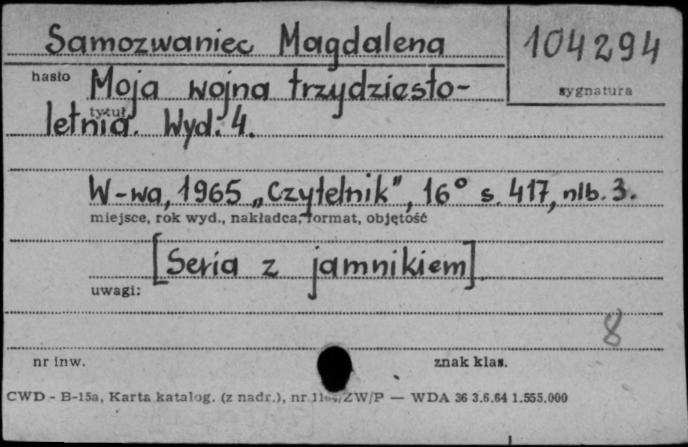 Samozwaniec Magdalena
104294
hasło
sygnatura
Moja wojna trzydziesto-
tytuł
letnia. Wyd. 4.
W-wa, 1965 „Czytelnik”, 16° s. 417, nlb. 3.
miejsce, rok wyd., nakładca, format, objętość
[Seria z jamnikiem]
uwagi:
8
nr inw.
znak klas.
CWD - B-15a, Karta katalog. (z nadr.), nr ZW/P — WDA 36 3.6.64 1.555.000